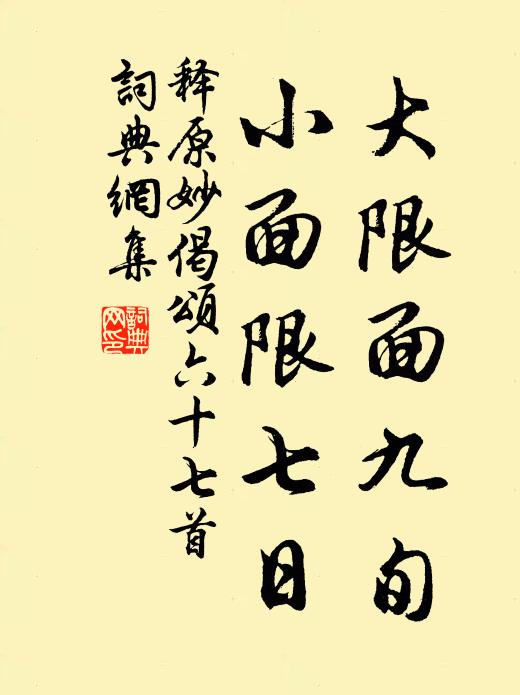 大限面九旬
小面限七日
释原妙偈颂六十七首
詞典網集
詞典
网印